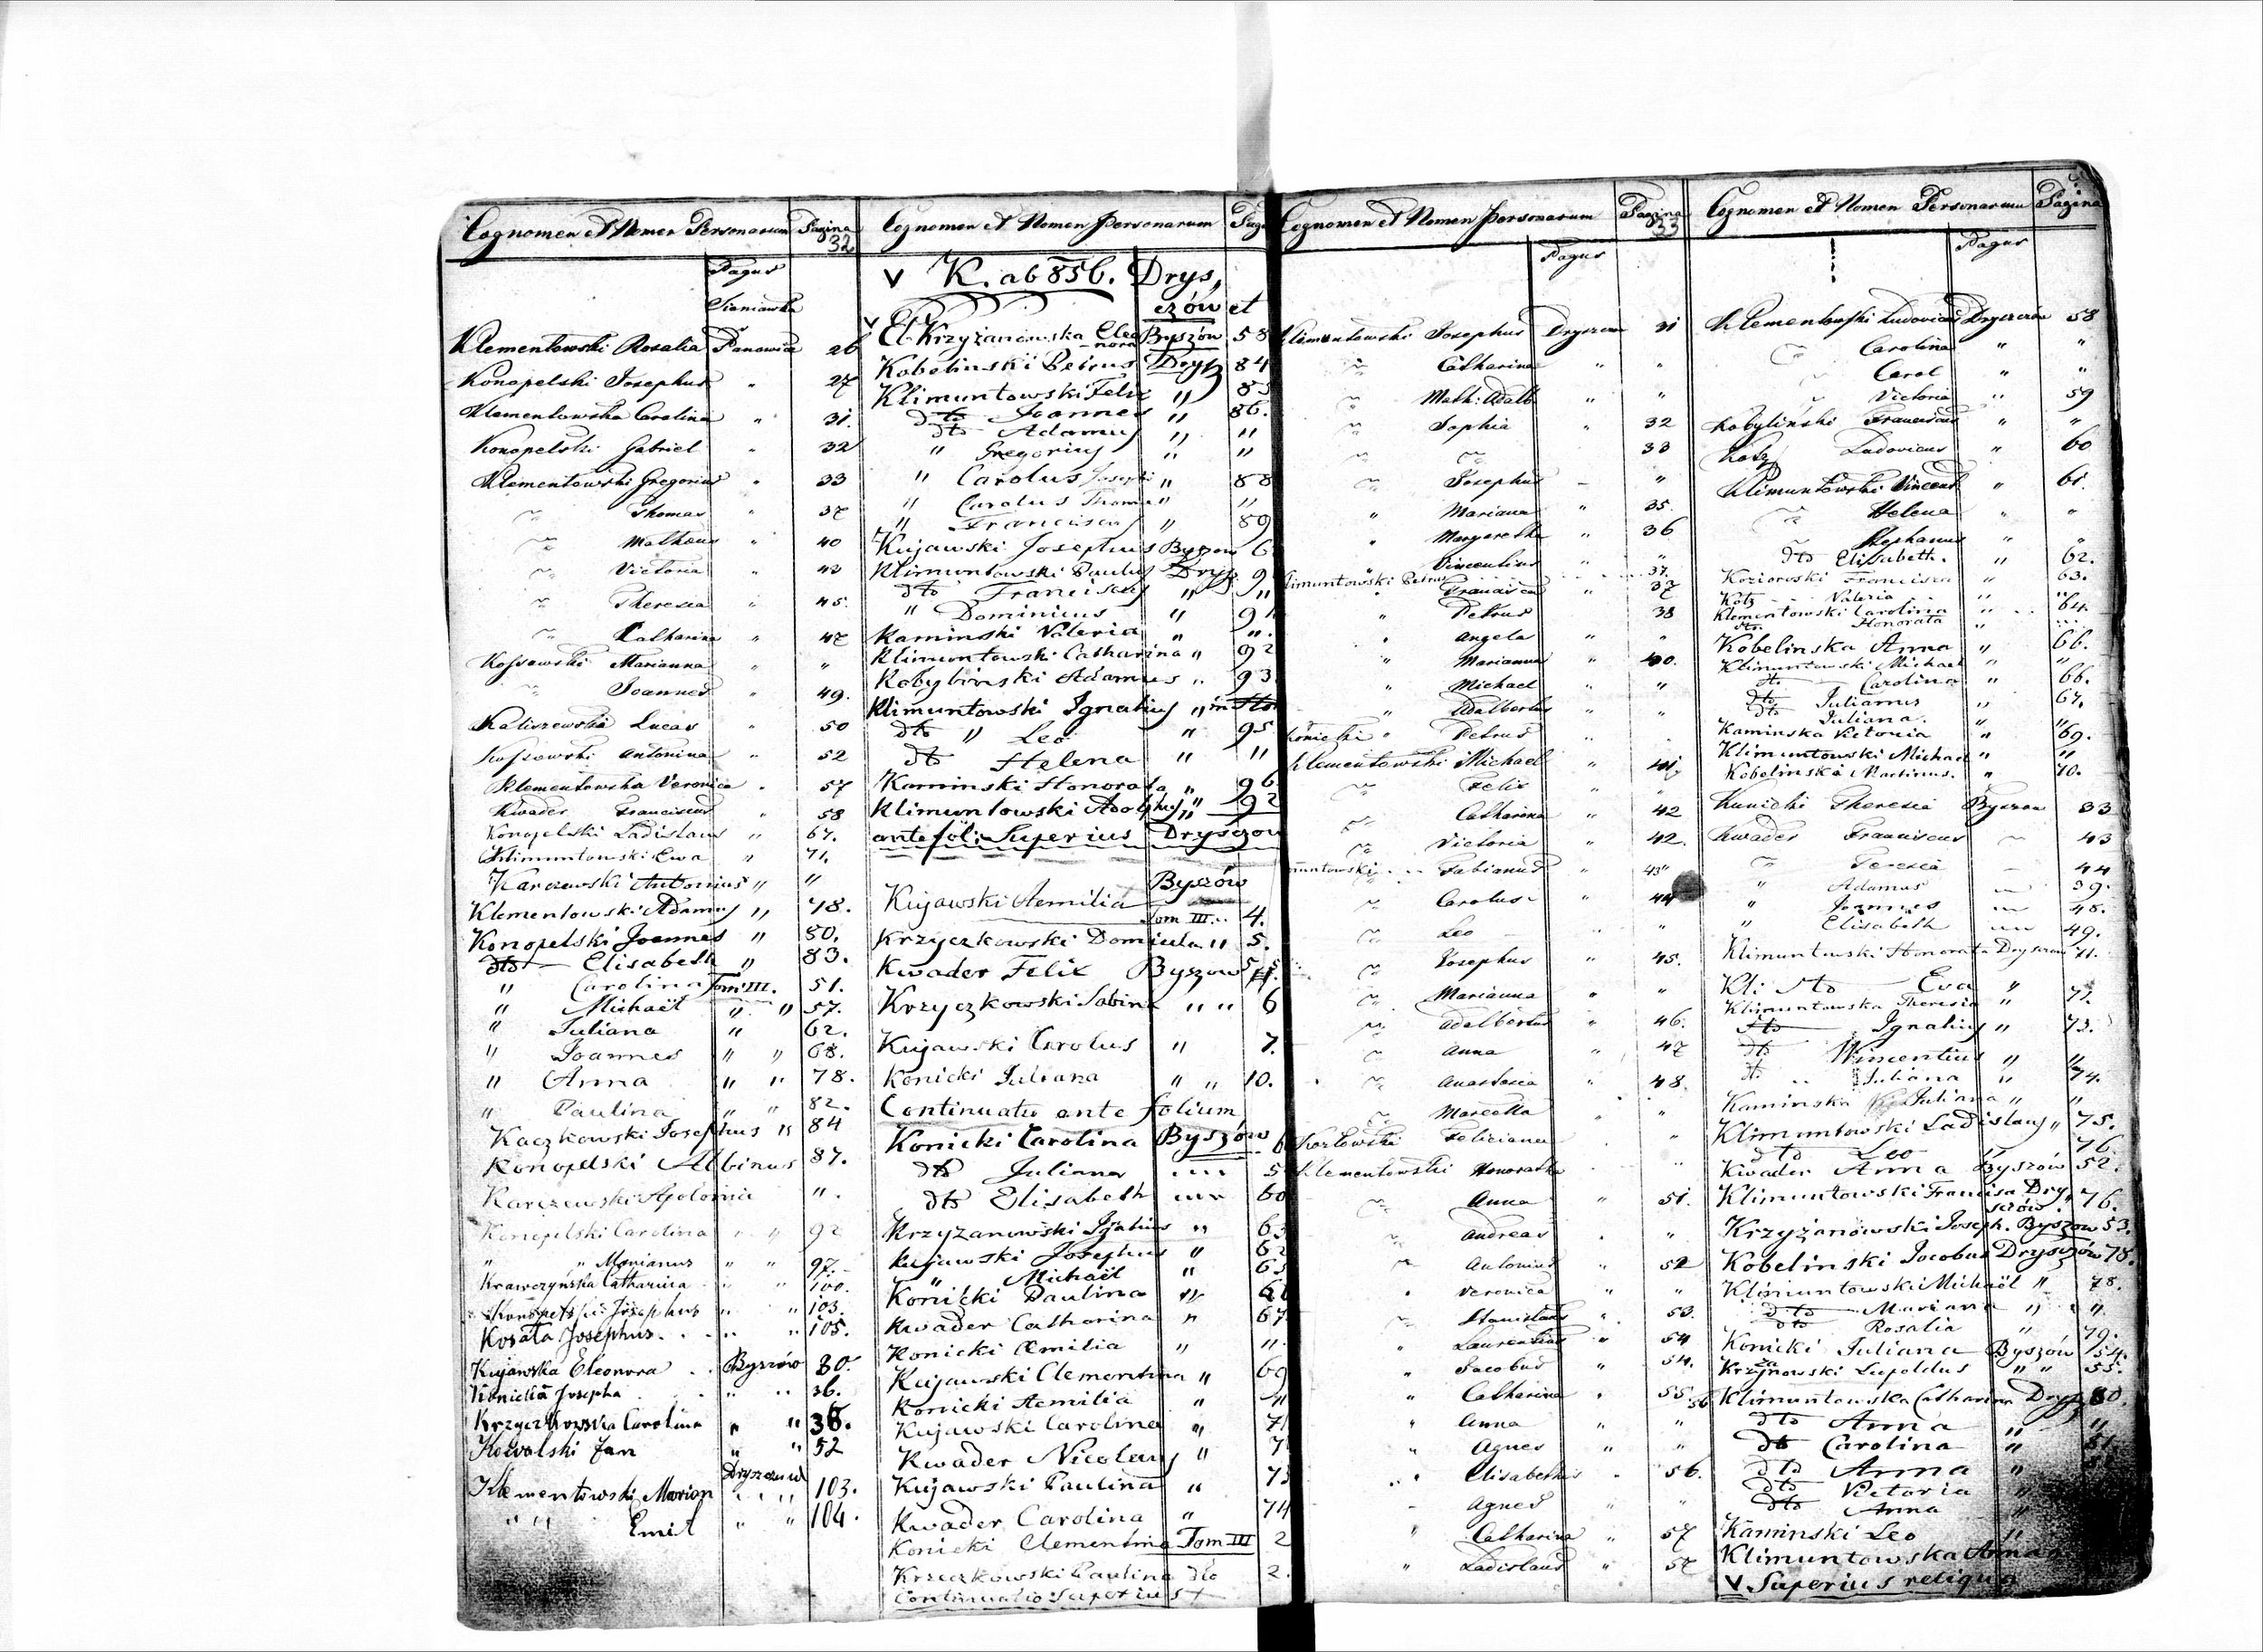 Cognomen et Nomen Personarum Pagina 32
Pagus
Sieniawka
Klementowski Rosalia Panowice 26
Konopelski Josephus " 27
Klementowska Carolina " 31.
Konopelski Gabriel " 32
Klementowski Gregorius " 33
~ Thomas " 37
~ Matheus " 40
~ Victoria " 43
~ Theresia " 45.
~ Catharina " 47
Kossowski Marianna " "
~ Joannes " 49.
Kaliszewski Lucas " 50
Kossowski Antonina " 52
Klementowska Veronica " 57
Kwader Franciscus " 58
Konopelski Ladislaus " 67.
Klimuntowski Ewa " 71.
Karczewski Antonius " "
Klementowski Adamus " 78.
Konopelski Joannes " 80.
dto Elisabeth " 83.
" Carolina Tom III. 51.
" Michaël " " 57.
" Juliana " 62.
" Joannes " " 68.
" Anna " " 78.
" Paulina " " 82.
Kaczkowski Josephus " 84
Konopelski Albinus 87.
Karczewski Apolonia ".
Konopelski Carolina " " 92
" " Marianus " " 97.
Krawczyńska Catharina " " 100.
Konopelski Josephus " " 103.
Kosata Josephus " " 105.
Kujawska Eleonora Byszów 30.
Konicka Josepha " " 36.
Krzyczkowska Carolina " " 38.
Kowalski Jan " " 52
Dryszczów
Klementowski Marion " " 103.
" " Emil " " 104.
Cognomen et Nomen Personarum Pag
V K. ab 856. Drys,
czów et
V Et Krzyżanowska Eleo Byszów 58
nora
Kobelinski Petrus Drysz 84
Klimuntowski Felix " 85
dto Joannes " 86.
dto Adamus " "
" Gregorius " "
" Carolus Josephi " 88
" Carolus Thoma " "
" Franciscus " 89
Kujawski Josephus Byszow 6
Klimuntowski Paulus Drysz. 9
dto Franciscus " "
" Dominicus " 91
Kaminski Valeria " ".
Klimuntowski Catharina " 92
Kobylinski Adamus " 93.
Klimuntowski Ignatius "
dto " Leo " 95
dto Helena " "
Kaminski Honorata " 96
Klimuntowski Adolphus " 92
ante fol: Superius Drysczow
Byszów
Kujawski Aemilia Tom III. 4.
Krzyczkowski Domicela " 5.
Kwader Felix Byszow 5
Krzyczkowski Sabina " " 6
Kujawski Carolus " 7.
Konicki Juliana " " 10.
Continuatu ante folium
Konicki Carolina Byszów 6
dto Juliana " " 5
dto Elisabeth " " 60
Krzyzanowski Ignatius " 63
Kujawski Josephus " 62
" Michaël " 65
Konicki Paulina "
Kwader Catharina " 67
Konicki Emilia " ".
Kujawski Clementina " 69
Konicki Aemilia " "
Kujawski Carolina " 71
Kwader Nicolaus " 7
Kujawski Paulina " 73
Kwader Carolina " 74
Konicki Clementina Tom III 2
Krzeczkowski Paulina dto 2.
Continuatio Superius +
Cognomen et Nomen Personarum Pagina 33
Pagus
Klimuntowski Josephus Dryszczow 31
~ Catharina " "
~ Math: Adalb " "
~ Sophia " 32
~ ~ 33
~ Josephus - "
" Mariana " 35.
" Margaretha " 36
" Vincentius "
Klimuntowski Petrus 37.
" Francisca " 37
" Petrus 38
" Angela " "
" Marianna " 40.
" Michael " "
" Adalbertus " "
Koniecki " Petrus " "
Klementowski Michael " 41
~ Felix " "
~ Catharina " 42
~ Victoria " 42.
Klimuntowski Fabianus " 43"
~ Carolus " 44
~ Leo " "
~ Josephus " 45.
~ Marianna " "
~ Adalbertus " 46.
~ Anna " 47
~ Anastasia " 48.
~ Marcella " "
Kozłowski Feliciana " "
Klementowski Honoratha "
~ Anna " 51.
~ Andreas " "
~ Antonius " 52
" Veronica " "
~ Stanislaus " 53.
" Laurentius " 54
" Jacobus " 54.
" Catharina " 55. 56
" Anna " "
" Agnes " "
" Elisabetha " 56.
- Agnes " "
" Catharina " 57
" Ladislaus " 57
Cognomen et Nomen Personarum Pagina
Pagus
Klementowski Ludovicus Dryszczów 58
~ Carolina " "
Carol " "
~ Victoria " 59
Kobyliński Franciscus " "
Kotz Ludovicus " 60
Klimuntowski Vincent " 61.
~ Helena " "
~ Stephanus " "
dto Elisabeth. " 62.
Koziorowski Francisca " 63.
Kotz Valeria " "
Klementowski Carolina " 64.
dto. Honorata "
Kobelinska Anna " 66.
Klimuntowski Michael " "
dto Carolina " 66.
dto Julianus " 67.
dto Juliana. "
Kaminska Victoria " 69.
Klimuntowski Michael " "
Kobelinski Martinus. " 70.
Kunicki Theresia Byszow 33
Kwader Franciscus ~ 43
~ Teresia - 44
" Adamus ~ 39.
" Joannes ~ 48.
" Elisabeth ~ 49.
Klimuntowski Honorata Dryszczow 71.
Kli dto Eva "
Klimuntowska Theresia " 72.
dto Ignatius " 73.
dto Wincentius " "
dt. Juliana " 74.
Kaminska Juliana " "
Klimuntowski Ladislaus " 75.
dto Leo " 76.
Kwader Anna Byszów 52.
Klimuntowski Francisa Dry 76.
sczów.
Krzyżanowski Joseph. Byszow 53.
Kobelinski Jacobus Dryszczów 78.
Klimuntowski Michaël " 78.
dto Mariana " "
dto Rosalia " 79.
Konicki Juliana Byszów 54.
Krzyżanowski Lupoldus " " 55.
Klimuntowska Catharina Drysz 80.
dto Anna " "
dto Carolina " 81.
dto Anna "
dto Victoria "
dto Anna "
Kaminski Leo "
Klimuntowska Anna
V Superius reliqua